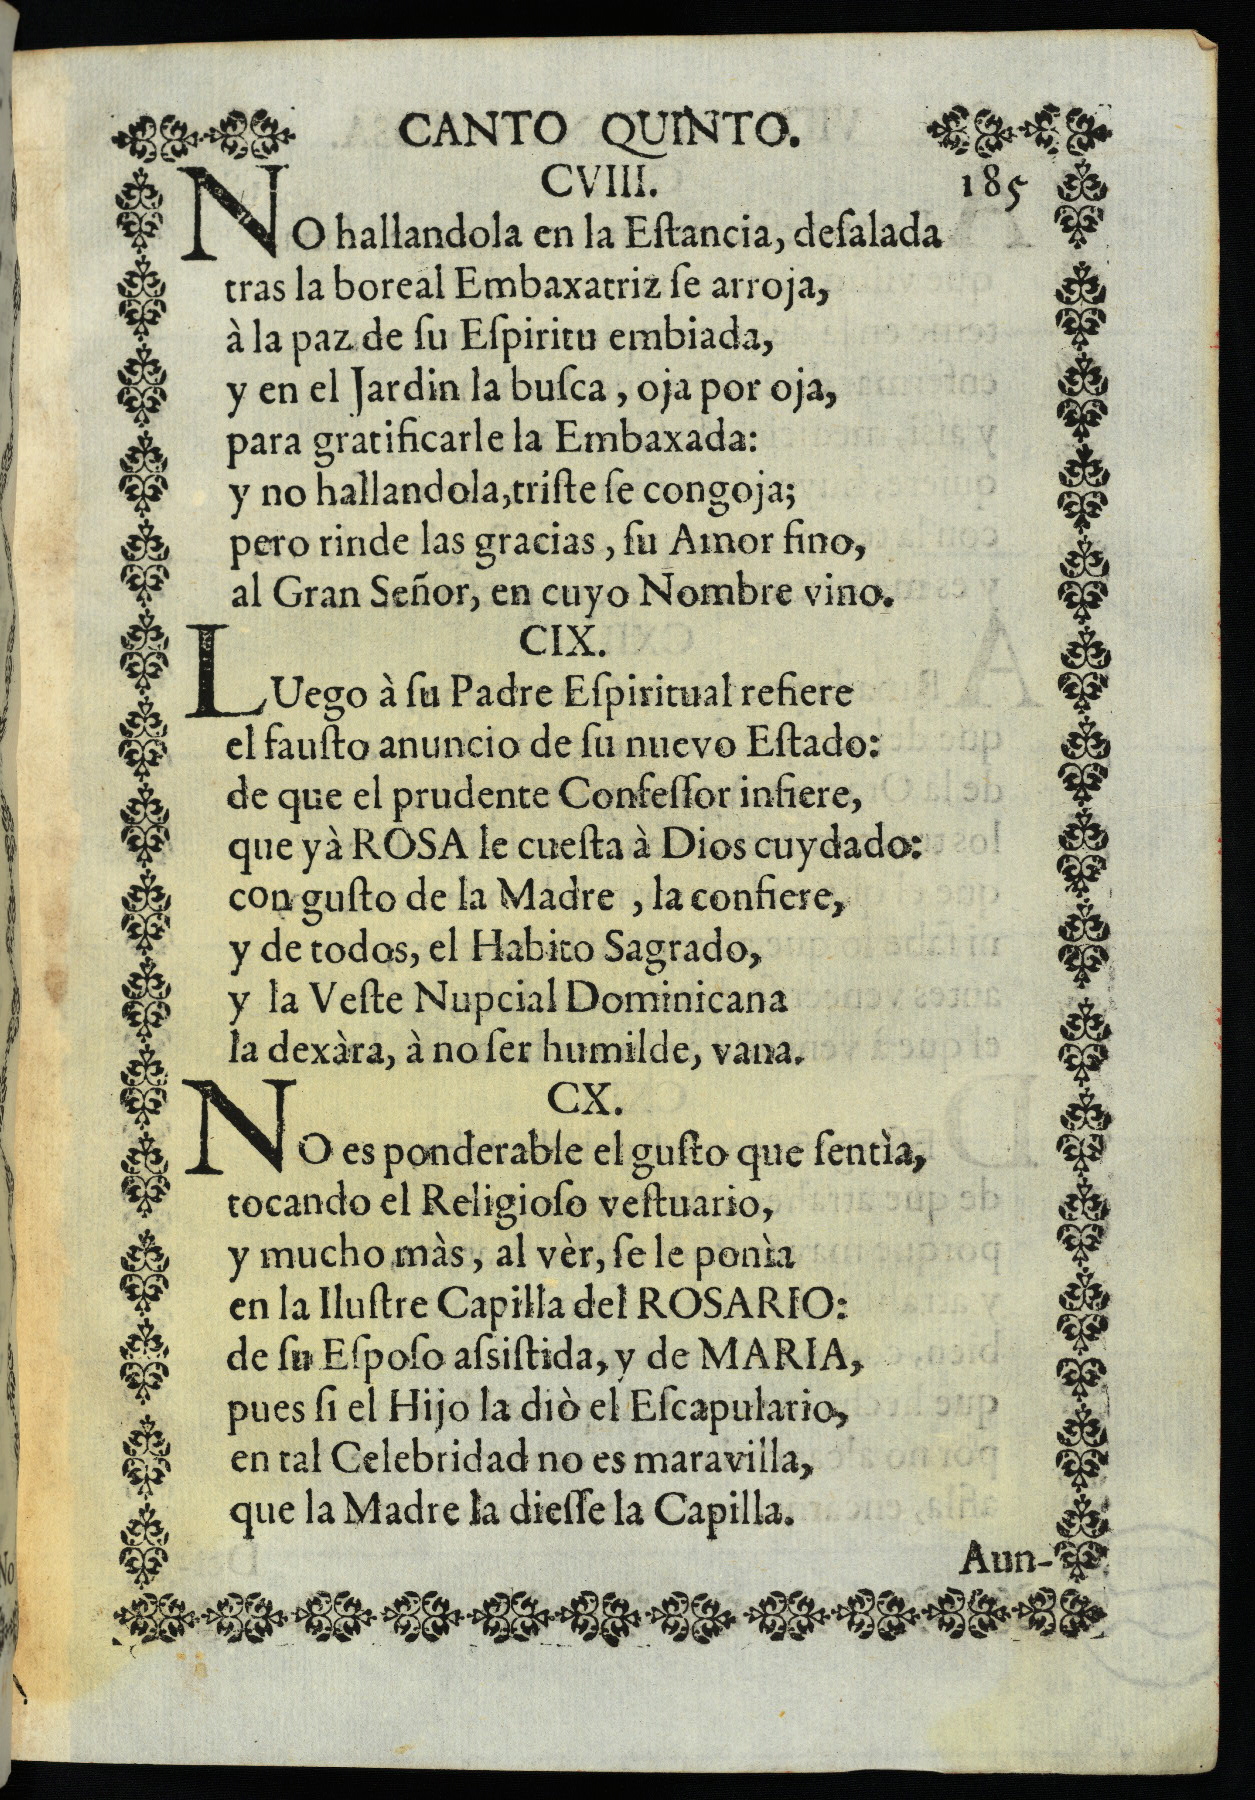 CANTO QUINTO.
CVIII. 185
NO hallandola en la Eſtancia, deſalada
tras la boreal Embaxatriz ſe arroja,
à la paz de ſu Eſpiritu embiada,
y en el Jardin la buſca, oja por oja,
para gratificarle la Embaxada:
y no hallandola, triſte ſe congoja;
pero rinde las gracias, ſu Amor fino,
al Gran Señor, en cuyo Nombre vino.
CIX.
LUego à ſu Padre Eſpiritual refiere
el fauſto anuncio de ſu nuevo Eſtado:
de que el prudente Confeſſor infiere,
que yà ROSA le cueſta à Dios cuydado:
con guſto de la Madre, la confiere,
y de todos, el Habito Sagrado,
y la Veſte Nupcial Dominicana
la dexàra, à no ſer humilde, vana.
CX.
NO es ponderable el guſto que ſentìa,
tocando el Religioſo veſtuario,
y mucho màs, al vèr, ſe le ponìa
en la Iluſtre Capilla del ROSARIO:
de ſu Eſpoſo aſsiſtida, y de MARIA,
pues ſi el Hijo la diò el Eſcapulario,
en tal Celebridad no es maravilla,
que la Madre la dieſſe la Capilla.
Aun-